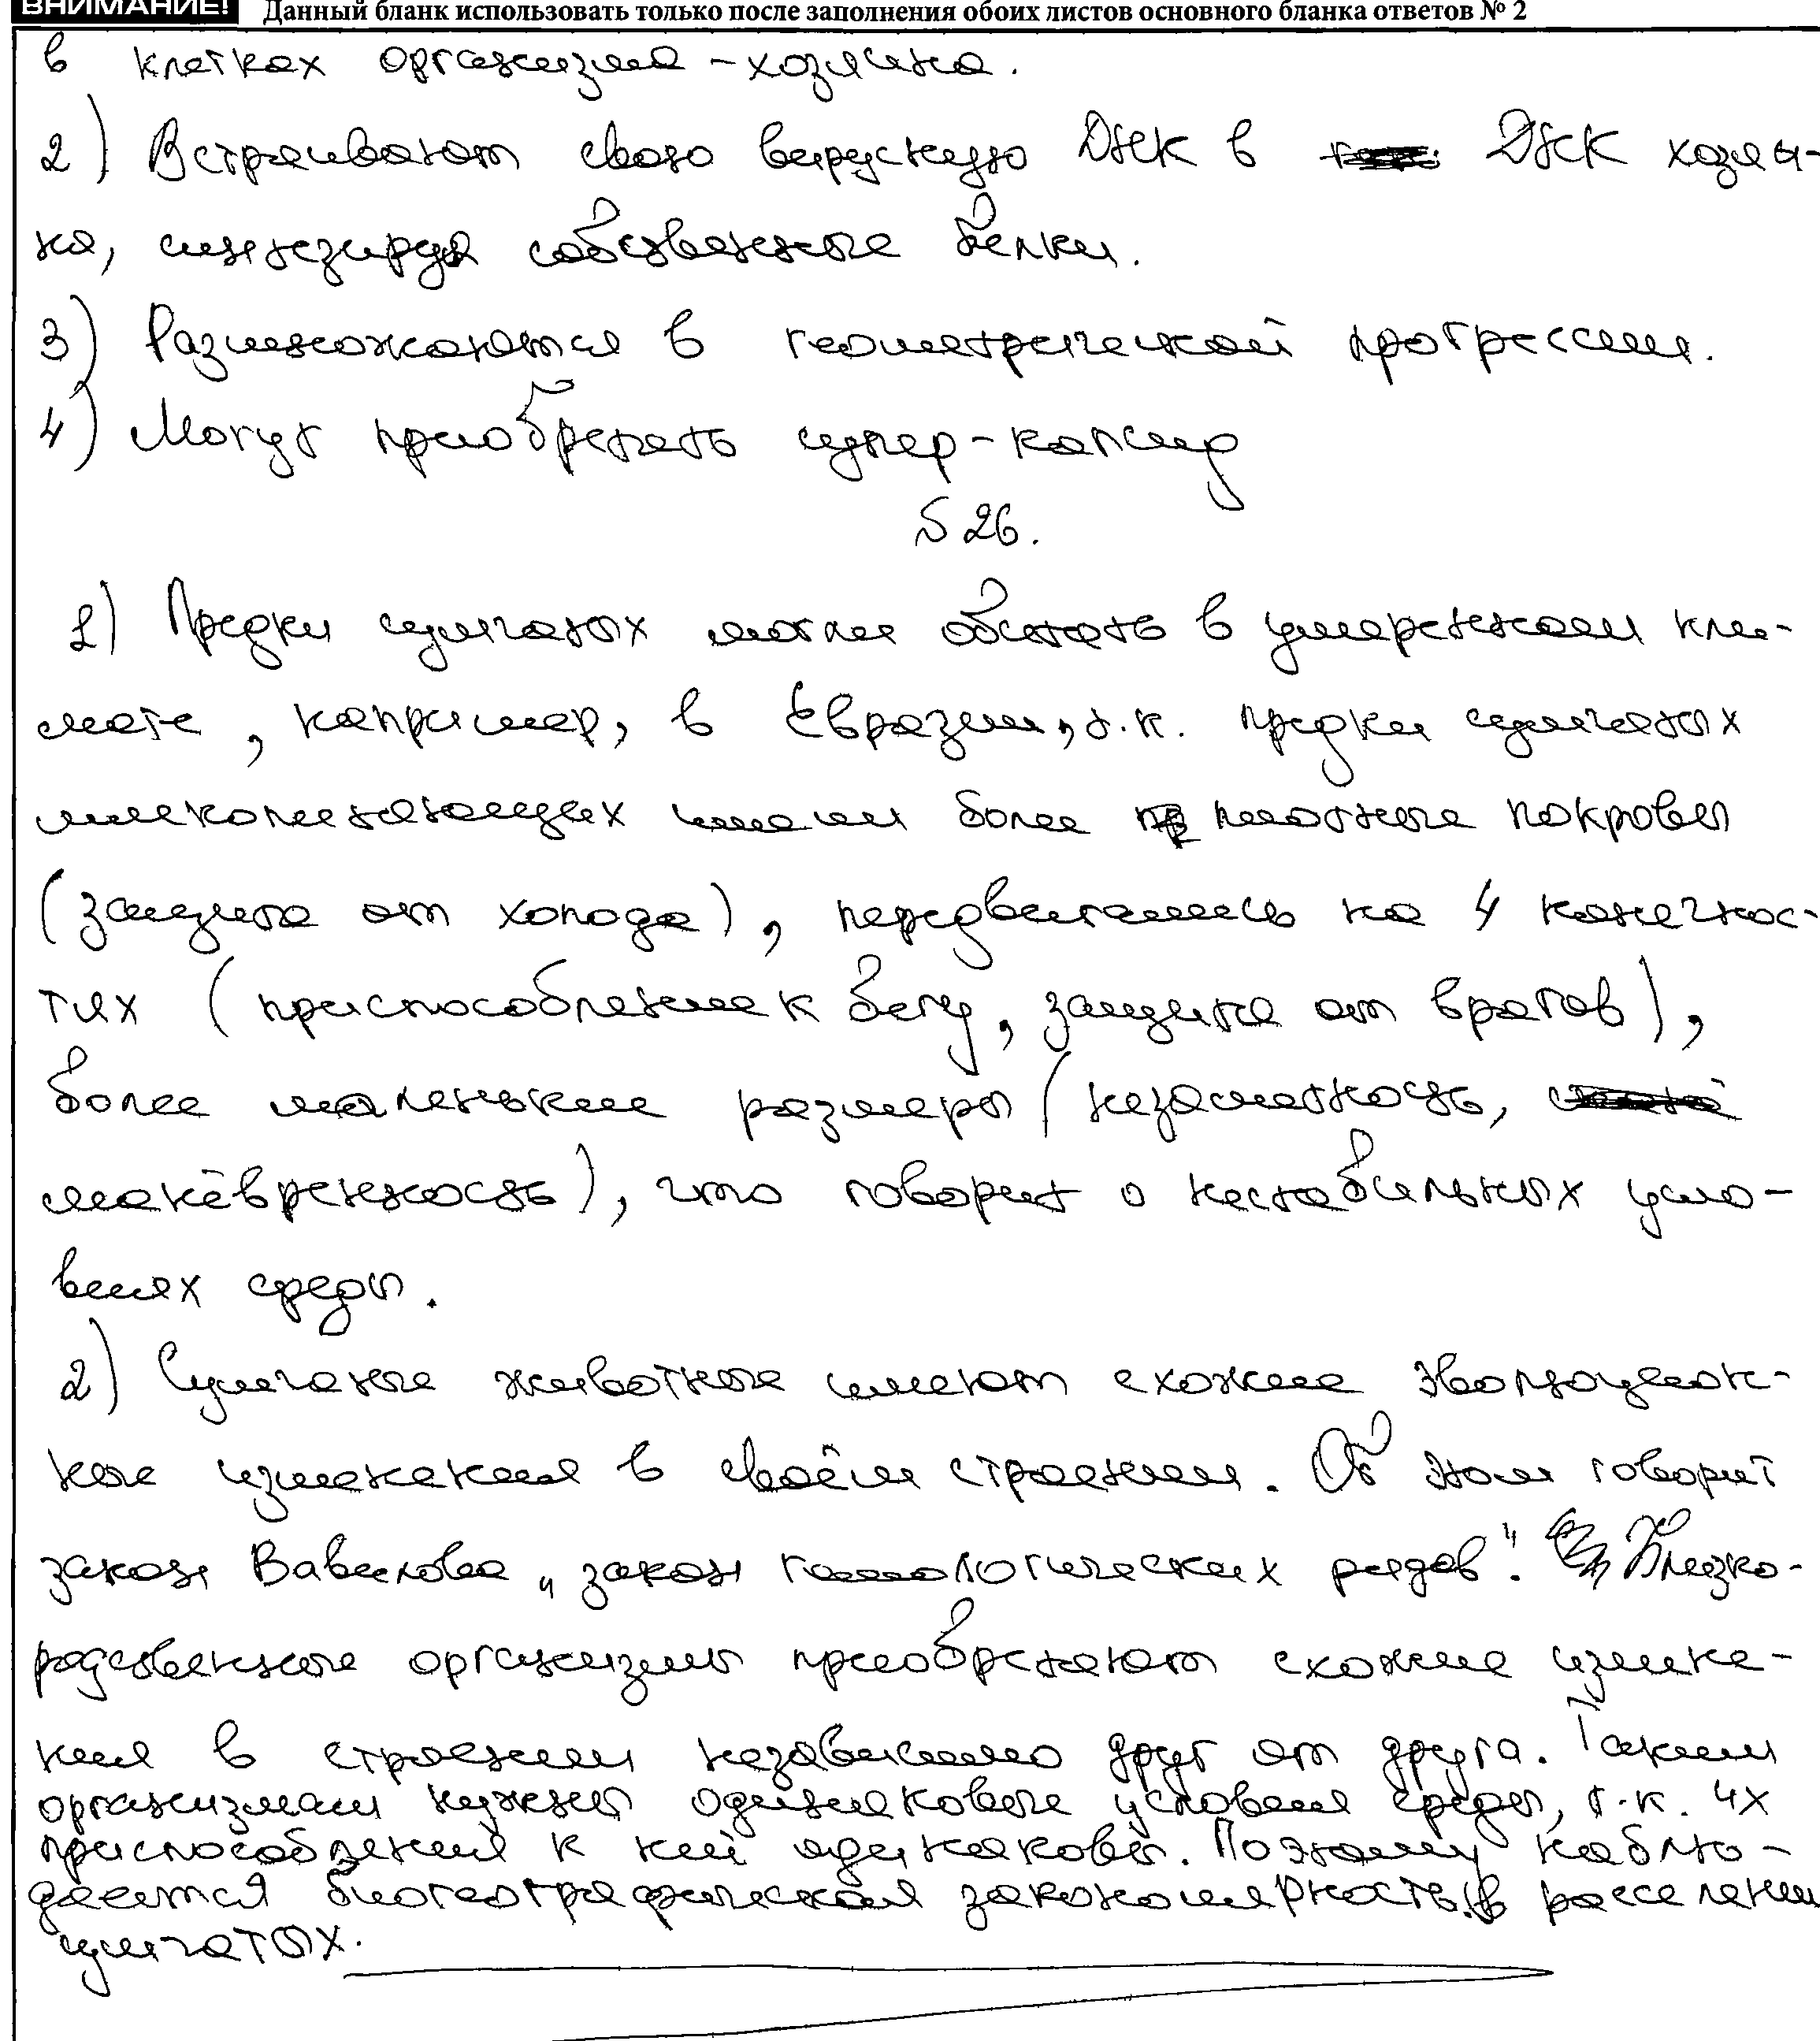 ВНИМАНИЕ! Данный бланк использовать только после заполнения обоих листов основного бланка ответов № 2
в клетках организма-хозяина.
2) Встраивают свою вирусную ДНК в ДНК хозяи-
на, синтезируя собственные белки.
3) Размножаются в геометрической прогрессии.
4) Могут приобретать супер-капсид
№ 26.
1) Предки сумчатых могли обитать в умеренном кли-
мате, например, в Евразии, т.к. предки сумчатых
млекопитающих имели более плотные покровы
(защита от холода), передвигались на 4 конечнос-
тях (приспособление к бегу, защита от врагов),
более маленькие размеры (незаметность,
манёвренность), что говорит о нестабильных усло-
виях среды.
2) Сумчатые животные имеют схожие эволюцион-
ные изменения в своём строении. Об этом говорит
закон Вавилова „закон гомологических рядов". Близко-
родственные организмы приобретают схожие измене-
ния в строении независимо друг от друга. Таким
организмам нужны одинаковые условия среды, т.к. их
приспособления к ней одинаковы. Поэтому наблю-
дается биогеографическая закономерность в расселении
сумчатых.